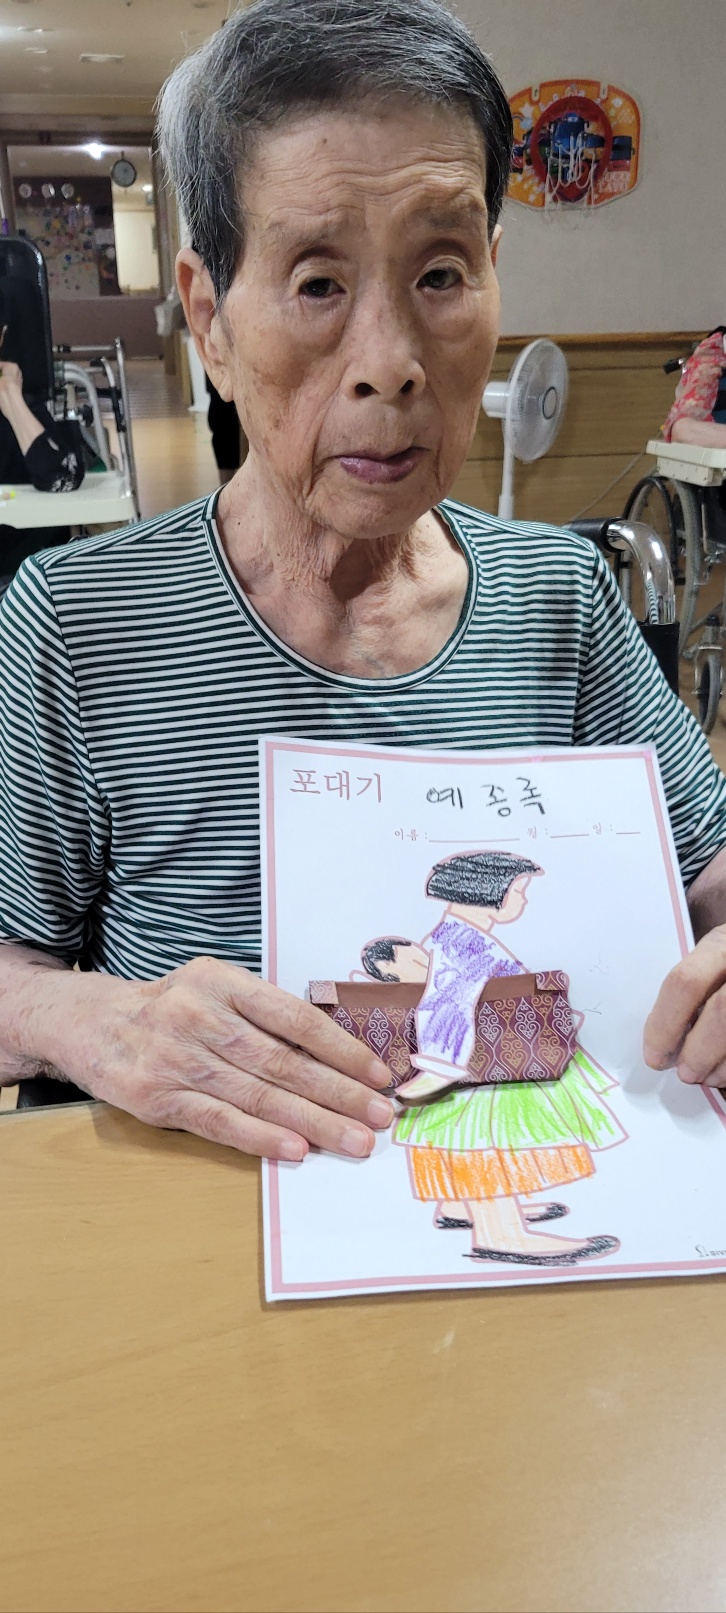 포대기 예종록
이름 : 월 : 일 :